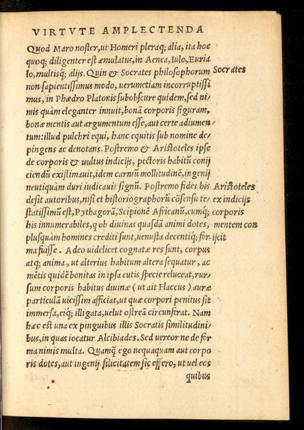 VIRTVTE AMPLECTENDA
Quod Maro noster, ut Homeri pleraq; alia, ita hoc
quoq; diligenter est æmulatus, in Aenea, Iulo, Euria
lo, multisq; alijs. Quin & Socrates philosophorum
Socrates
non sapientissimus modo, uerumetiam incorruptissi
mus, in Phædro Platonis subobscure quidem, sed ni-
mis quàm eleganter innuit, bonã corporis figuram,
bonæ mentis aut argumentum esse, aut certe adiumen-
tum: illud pulchri equi, hanc equitis sub nomine de-
pingens ac denotans. Postremo & Aristoteles ipse
de corporis & uultus indicijs, pectoris habitũ conij
ciendũ existimauit, idem carniũ mollitudinẽ, ingenij
neutiquàm duri iudicauit signũ. Postremo fides his
Aristoteles
desit autoribus, nisi et historiographorũ cõsensu te-
ex indicijs
statissimũ est, Pythagorã, Scipionẽ Africanũ, cumq;
corporis
his innumerabiles, q ob diuinas quasdã animi dotes,
mentem con
plusquàm homines crediti sunt, uenusta decentiq; for-
ijcit
ma fuisse. Adeo uidelicet cognatæ res sunt, corpus
atq; anima, ut alterius habitum altera sequatur, ac
mẽtis quidẽ bonitas in ipsa cutis specie reluceat, rur-
sum corporis habitus diuinæ (ut ait Flaccus) auræ
particulã uicissim afficiat, ut quæ corpori penitus sit
immersa, eiq; illigata, uelut ostreã circunferat. Nam
hæc est una ex pinguibus illis Socratis similitudini-
bus, in quas iocatur Alcibiades. Sed uerror ne de for
ma nimis multa. Quamq̃ ego nequaquam aut corpo
ris dotes, aut ingenij felicitatem sic effero, ut uel eos
quibus